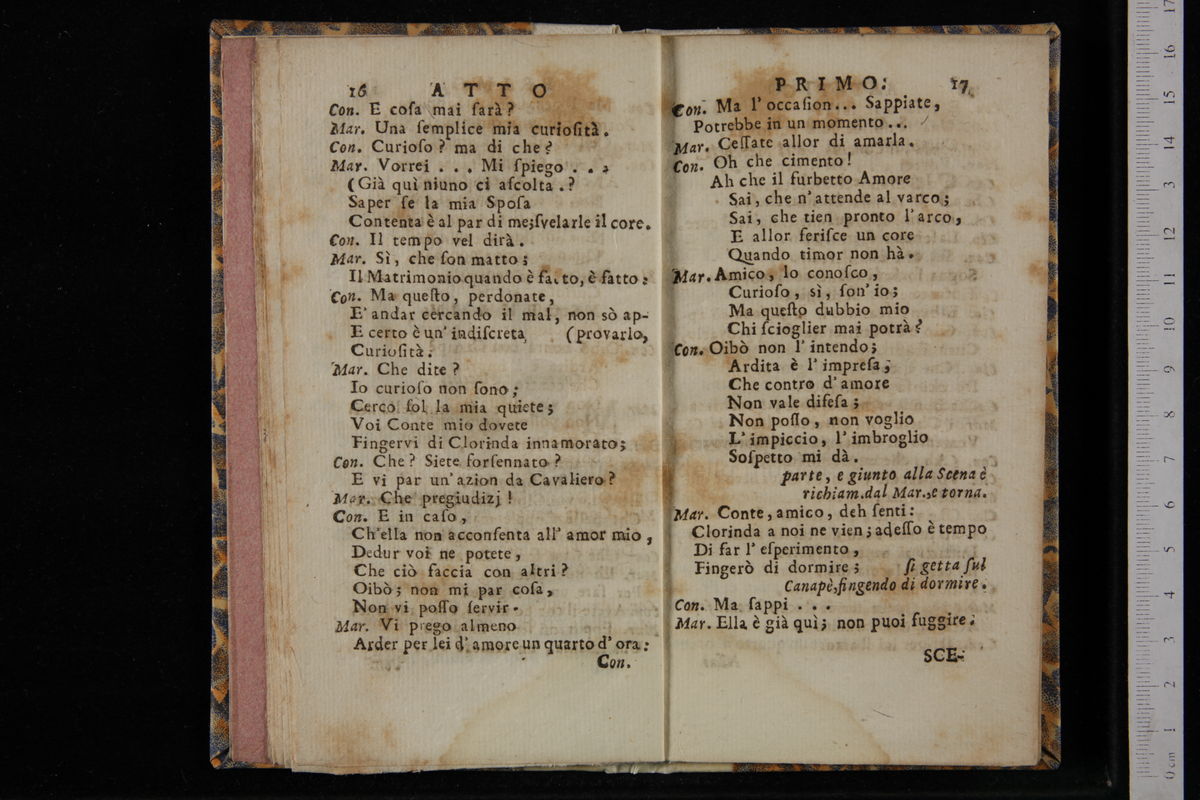 16 ATTO
Con. E coſa mai ſarà?
Mar. Una ſemplice mia curioſità.
Con. Curioſo? ma di che?
Mar. Vorrei . . . Mi ſpiego . . .
(Già quì niuno ci aſcolta.?
Saper ſe la mia Spoſa
Contenta è al par di me;ſvelarle il core.
Con. Il tempo vel dirà.
Mar. Sì, che ſon matto;
Il Matrimonio quando è fatto, è fatto:
Con. Ma queſto, perdonate,
E' andar cercando il mal, non sò ap-
E certo è un' indiſcreta (provarlo,
Curioſità.
Mar. Che dite?
Io curioſo non ſono;
Cerco ſol la mia quiete;
Voi Conte mio dovete
Fingervi di Clorinda innamorato;
Con. Che? Siete forſennato?
E vi par un' azion da Cavaliero?
Mar. Che pregiudizj!
Con. E in caſo,
Ch'ella non acconſenta all' amor mio,
Dedur voi ne potete,
Che ciò faccia con altri?
Oibò; non mi par coſa,
Non vi poſſo ſervir.
Mar. Vi prego almeno
Arder per lei d' amore un quarto d' ora:
Con.
PRIMO. 17
Con. Ma l' occaſion... Sappiate,
Potrebbe in un momento...
Mar. Ceſſate allor di amarla.
Con. Oh che cimento!
Ah che il furbetto Amore
Sai, che n' attende al varco;
Sai, che tien pronto l' arco,
E allor feriſce un core
Quando timor non hà.
Mar. Amico, lo conoſco,
Curioſo, sì, ſon' io;
Ma queſto dubbio mio
Chi ſcioglier mai potrà?
Con. Oibò non l' intendo;
Ardita è l' impreſa;
Che contro d' amore
Non vale difeſa;
Non poſſo, non voglio
L' impiccio, l' imbroglio
Soſpetto mi dà.
parte, e giunto alla Scena è
richiam.dal Mar.,e torna.
Mar. Conte, amico, deh ſenti:
Clorinda a noi ne vien; adeſſo è tempo
Di far l' eſperimento,
Fingerò di dormire; ſi getta ſul
Canapè,fingendo di dormire.
Con. Ma ſappi . . .
Mar. Ella è già quì; non puoi fuggire.
SCE-